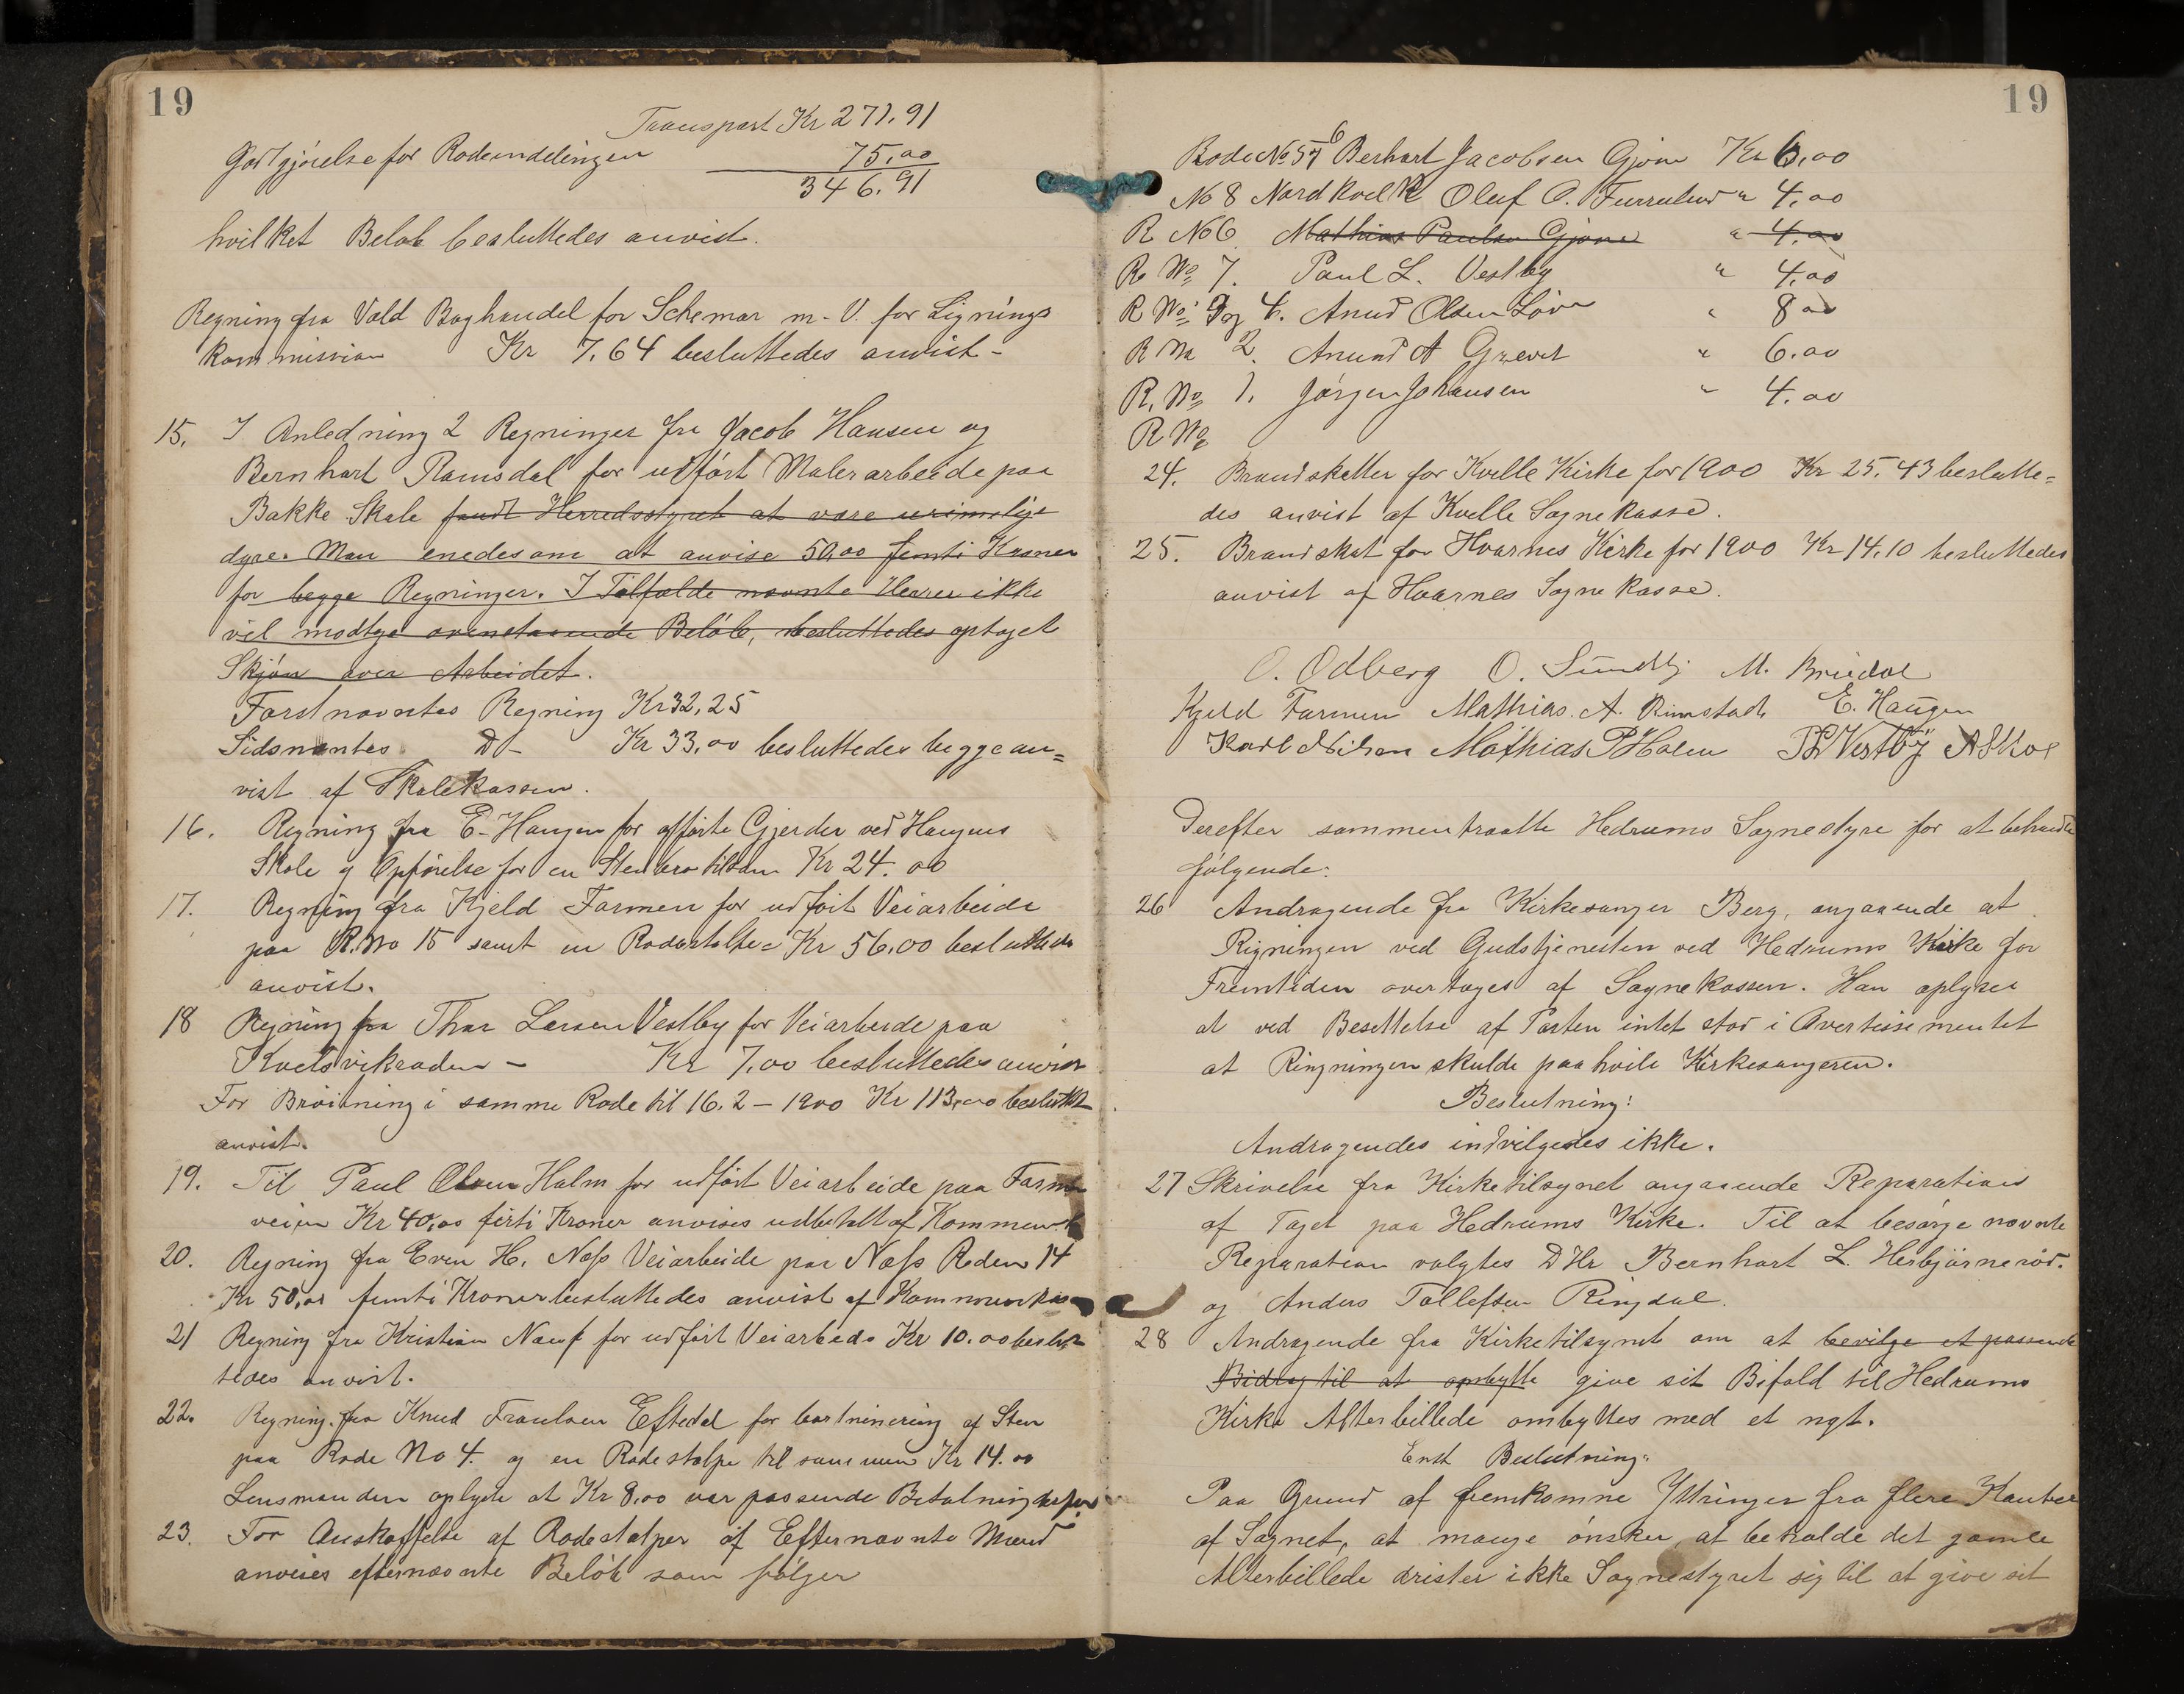 19
Transport Kr 271.91
Godtgjörelse for Rodeinddelingen 75,00
346.91
hvilket Beløb besluttedes anvist.
Regning fra Vald Boghandel for Schemar m. V. for Lignings
kommission Kr 7,64 besluttedes anvist-
15. I Anledning 2 Regninger fra Jacob Hansen og
Bernhart Ramsdal for udfört Malerarbeide paa
Bakke Skole fandt Herredsstyret at være urimelige
dyre. Man enedes om at anvise 50,00 femti Kroner
for begge Regninger. I Tilfælde nævnte Herrer ikke
vil modtge ovenstaaende Belöb, besluttedes optaget
Skjön over Arbeidet.
Förstnævntes Regning Kr 32,25
Sidsnæntes D- Kr 33,00 besluttedes begge an=
vist af Skolekassen.
16. Regning fra E. Haugen for opførte Gjerder ved Haugens
Skole og Opförelse for en Stenbro tilsam Kr 24.00
17. Regning fra Kjeld Farmen for udfört Veiarbeide
paa R. No 15 samt en Rodestolpe = Kr 56,00 besluttedes
anvist.
18 Regning fra Thor Larsen Vestby for Veiarbeide paa
Kvelsvikroden - Kr 7,00 besluttedes anvist
For Bröitning i samme Rode til 16.2-1900 Kr 113,00 besluttet
anvist.
19. Til Paul Olsen Holm for udfört Veiarbeide paa Farmen
veien Kr 40,00 firti Kroner anvises udbetalt af Kommunek
20. Regning fra Even H. Næss Veiarbeide paa Næss Roden 14
Kr 50,00 femti Kroner besluttedes anvist af Kommunekas
21 Regning fra Kristian for udfört Veiarbeide Kr 10.00 beslut
tedes anvist.
22. Regning fra Knud Eftedal for bortminering af Sten
paa Rode No 4. og en Rodestolpe til sammen Kr 14.00
Lensmanden oplyste at Kr 8,00 var passende Betalning
23. For Anskaffelse af Rodestolper af Efternævnte Mænd
anvises efternævnte Belöb som fölger
19
Rode No 57 6 Berhart Jacobsen Gjone Kr 6,00
No 8 Nordkvelle Oluf O. Furulund " 4,00
R No 6. Mathias Paulsen Gjone " 4,00
R No 7. Paul L. Vestby " 4,00
R No 3 og 4. Anund Olsen Löve " 8 00
R No 2. Anund A Grevet " 6.00
R. No 1. Jörgen Johansen " 4.00
R No
24. Brandskatter for Kvelle Kirke for 1900 Kr 25.43 beslutte=
des anvist af Kvelle Sognekasse.
25. Brandskat for Hvarnes Kirke for 1900 Kr 14,10 besluttedes
anvist af Hvarnes Sognekasse.
O. Odberg O. Sundby M. Bredal
Kjeld Farmen Mathias. A. Rimstad E. Haugen
Karl Nilsen Mathias P Holm PL Vestby A Skoe
Derefter sammentraatte Hedrums Sognestyre for at behandle
fölgende:
26 Andragende fra Kirkesanger Berg, angaaende at
Rigningen ved Gudstjenesten ved Hedrums Kirke for
Fremtiden overtages af Sognekassen. Han oplyser
at ved Besettelse af Posten intet stod i Avertissementet
at Ringningen skulde paahvile Kirkesangeren.
Beslutning:
Andragendes indvilgedes ikke.
27 Skrivelse fra Kirketilsynet angaaende Reparation
af Taget paa Hedrums Kirke. Til at besörge nævnte
Reparation valgtes D Hr Bernhart L. Herbjörnsröd.
og Anders Tollefsen Ringdal.
28 Andragende fra Kirketilsynet om at bevilge et passende
Bidrag til at ombytte give sit Bifald til Hedrums
Kirke Alterbillede ombyttes med et nyt.
Enst Beslutning:
Paa Grund af fremkomne Yttringer fra flere Kanter
af Sognet, at mange önsker at beholde det gamle
Alterbillede drister ikke Sognestyret sig til at give sit